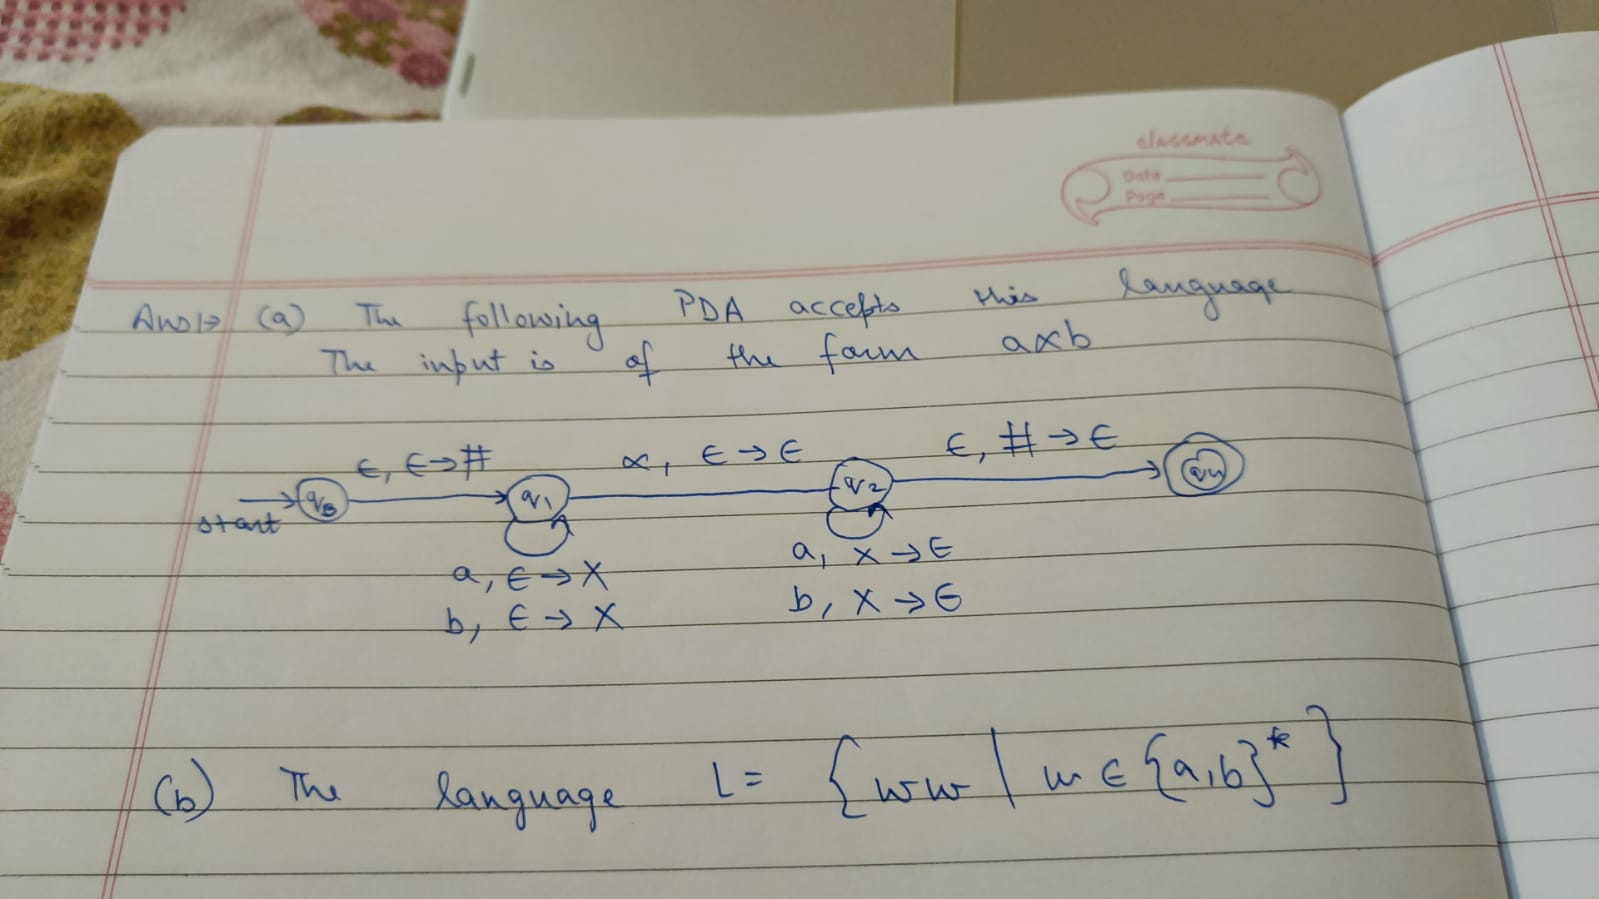 classmate
Date
Page
Ans1→ (a) The following PDA accepts this language
The input is of the form aαb
ϵ, ϵ→# α, ϵ→ϵ ϵ, #→ϵ
start q₁ q₂
a, ϵ→X a, X→ϵ
b, ϵ→X b, X→ϵ
(b) The language L = {ww | w ∈ {a,b}*}